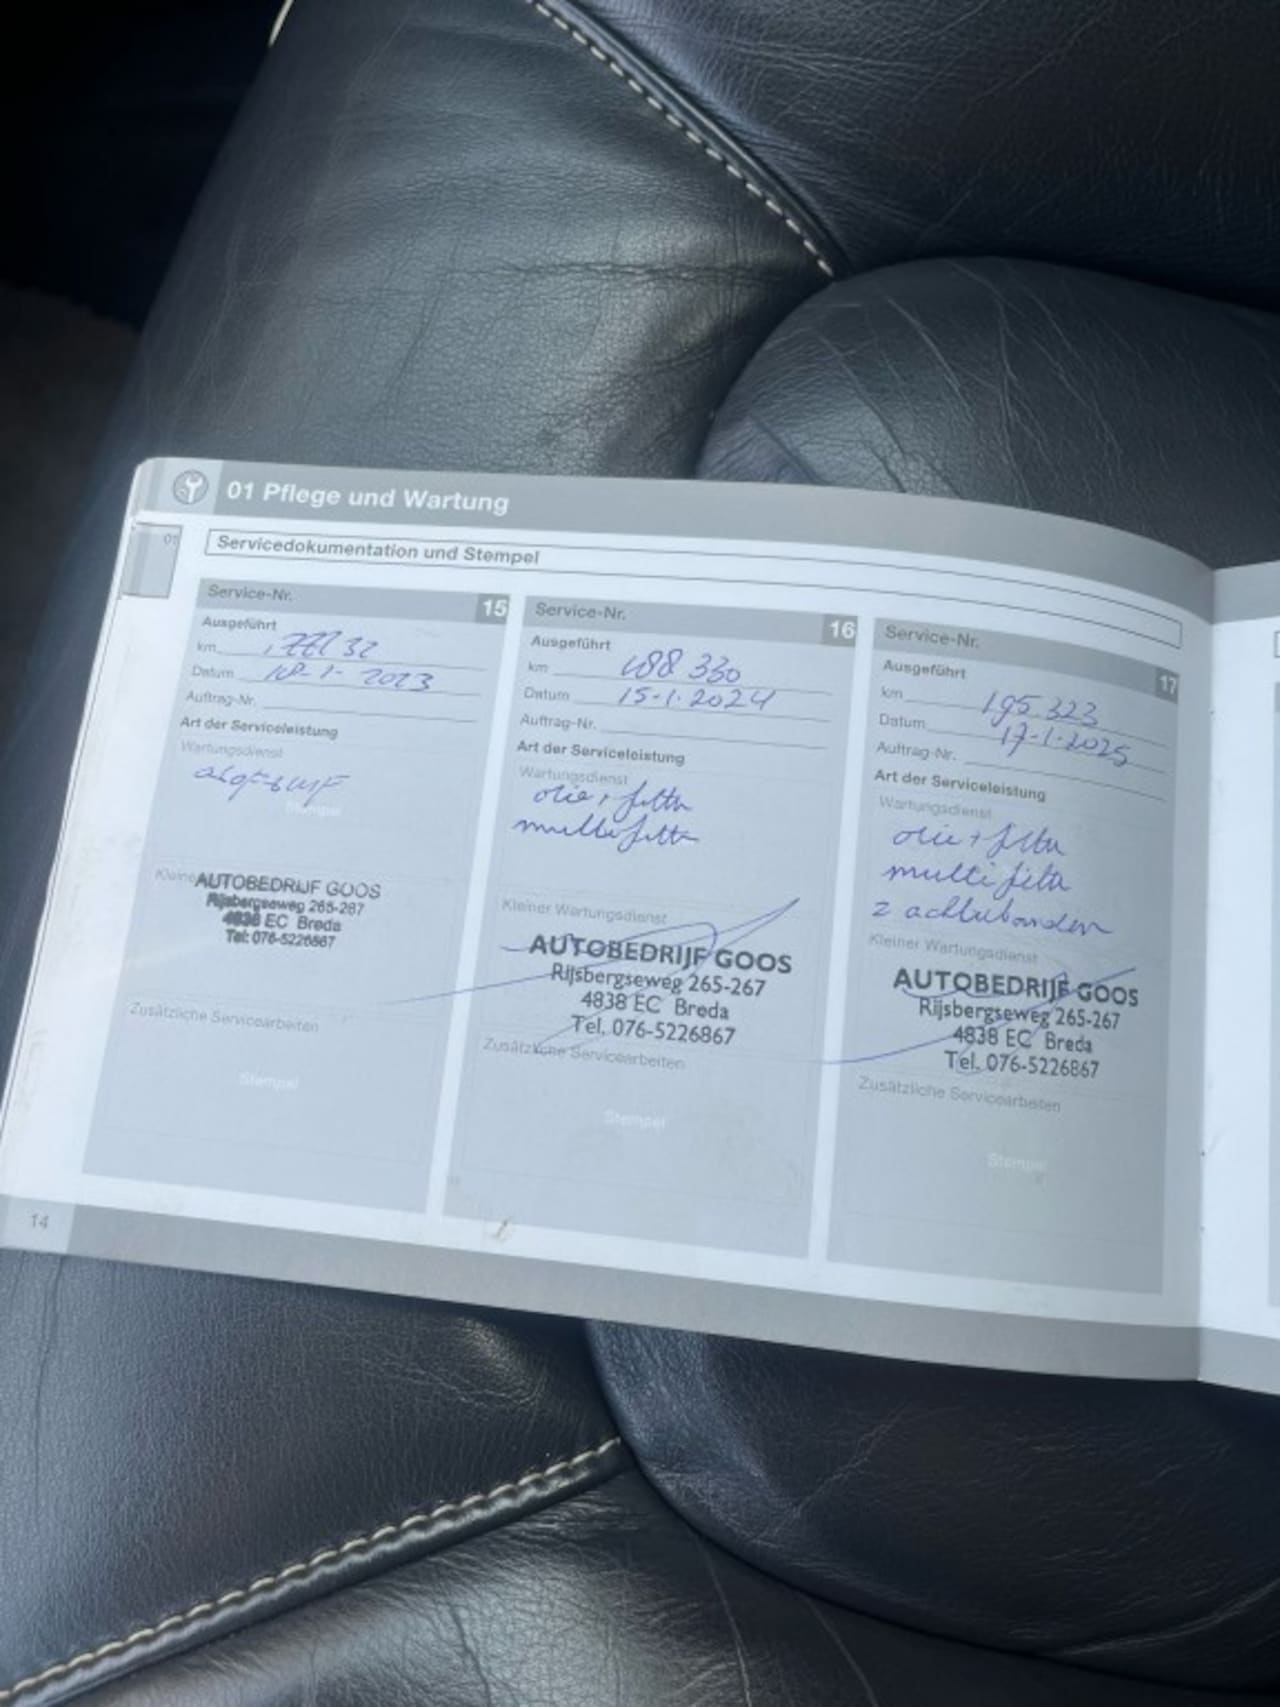 01 Pflege und Wartung
01
Servicedokumentation und Stempel
Service-Nr. 15
Ausgeführt
km
Datum 18-1-2023
Auftrag-Nr.
Art der Serviceleistung
Wartungsdienst
Stempel
Kleine
AUTOBEDRIJF GOOS
Rijsbergseweg 265-267
4838 EC Breda
Tel: 076-5226867
Zusätzliche Servicearbeiten
Stempel
Service-Nr. 16
Ausgeführt
km 188 330
Datum 15-1-2024
Auftrag-Nr.
Art der Serviceleistung
Wartungsdienst
olie + filter
multifilter
Kleiner Wartungsdienst
AUTOBEDRIJF GOOS
Rijsbergseweg 265-267
4838 EC Breda
Tel. 076-5226867
Zusätzliche Servicearbeiten
Stempel
Service-Nr. 17
Ausgeführt
km 195 323
Datum 17-1-2025
Auftrag-Nr.
Art der Serviceleistung
Wartungsdienst
olie + filter
multifilter
2 achterbanden
Kleiner Wartungsdienst
AUTOBEDRIJF GOOS
Rijsbergseweg 265-267
4838 EC Breda
Tel. 076-5226867
Zusätzliche Servicearbeiten
Stempel
14